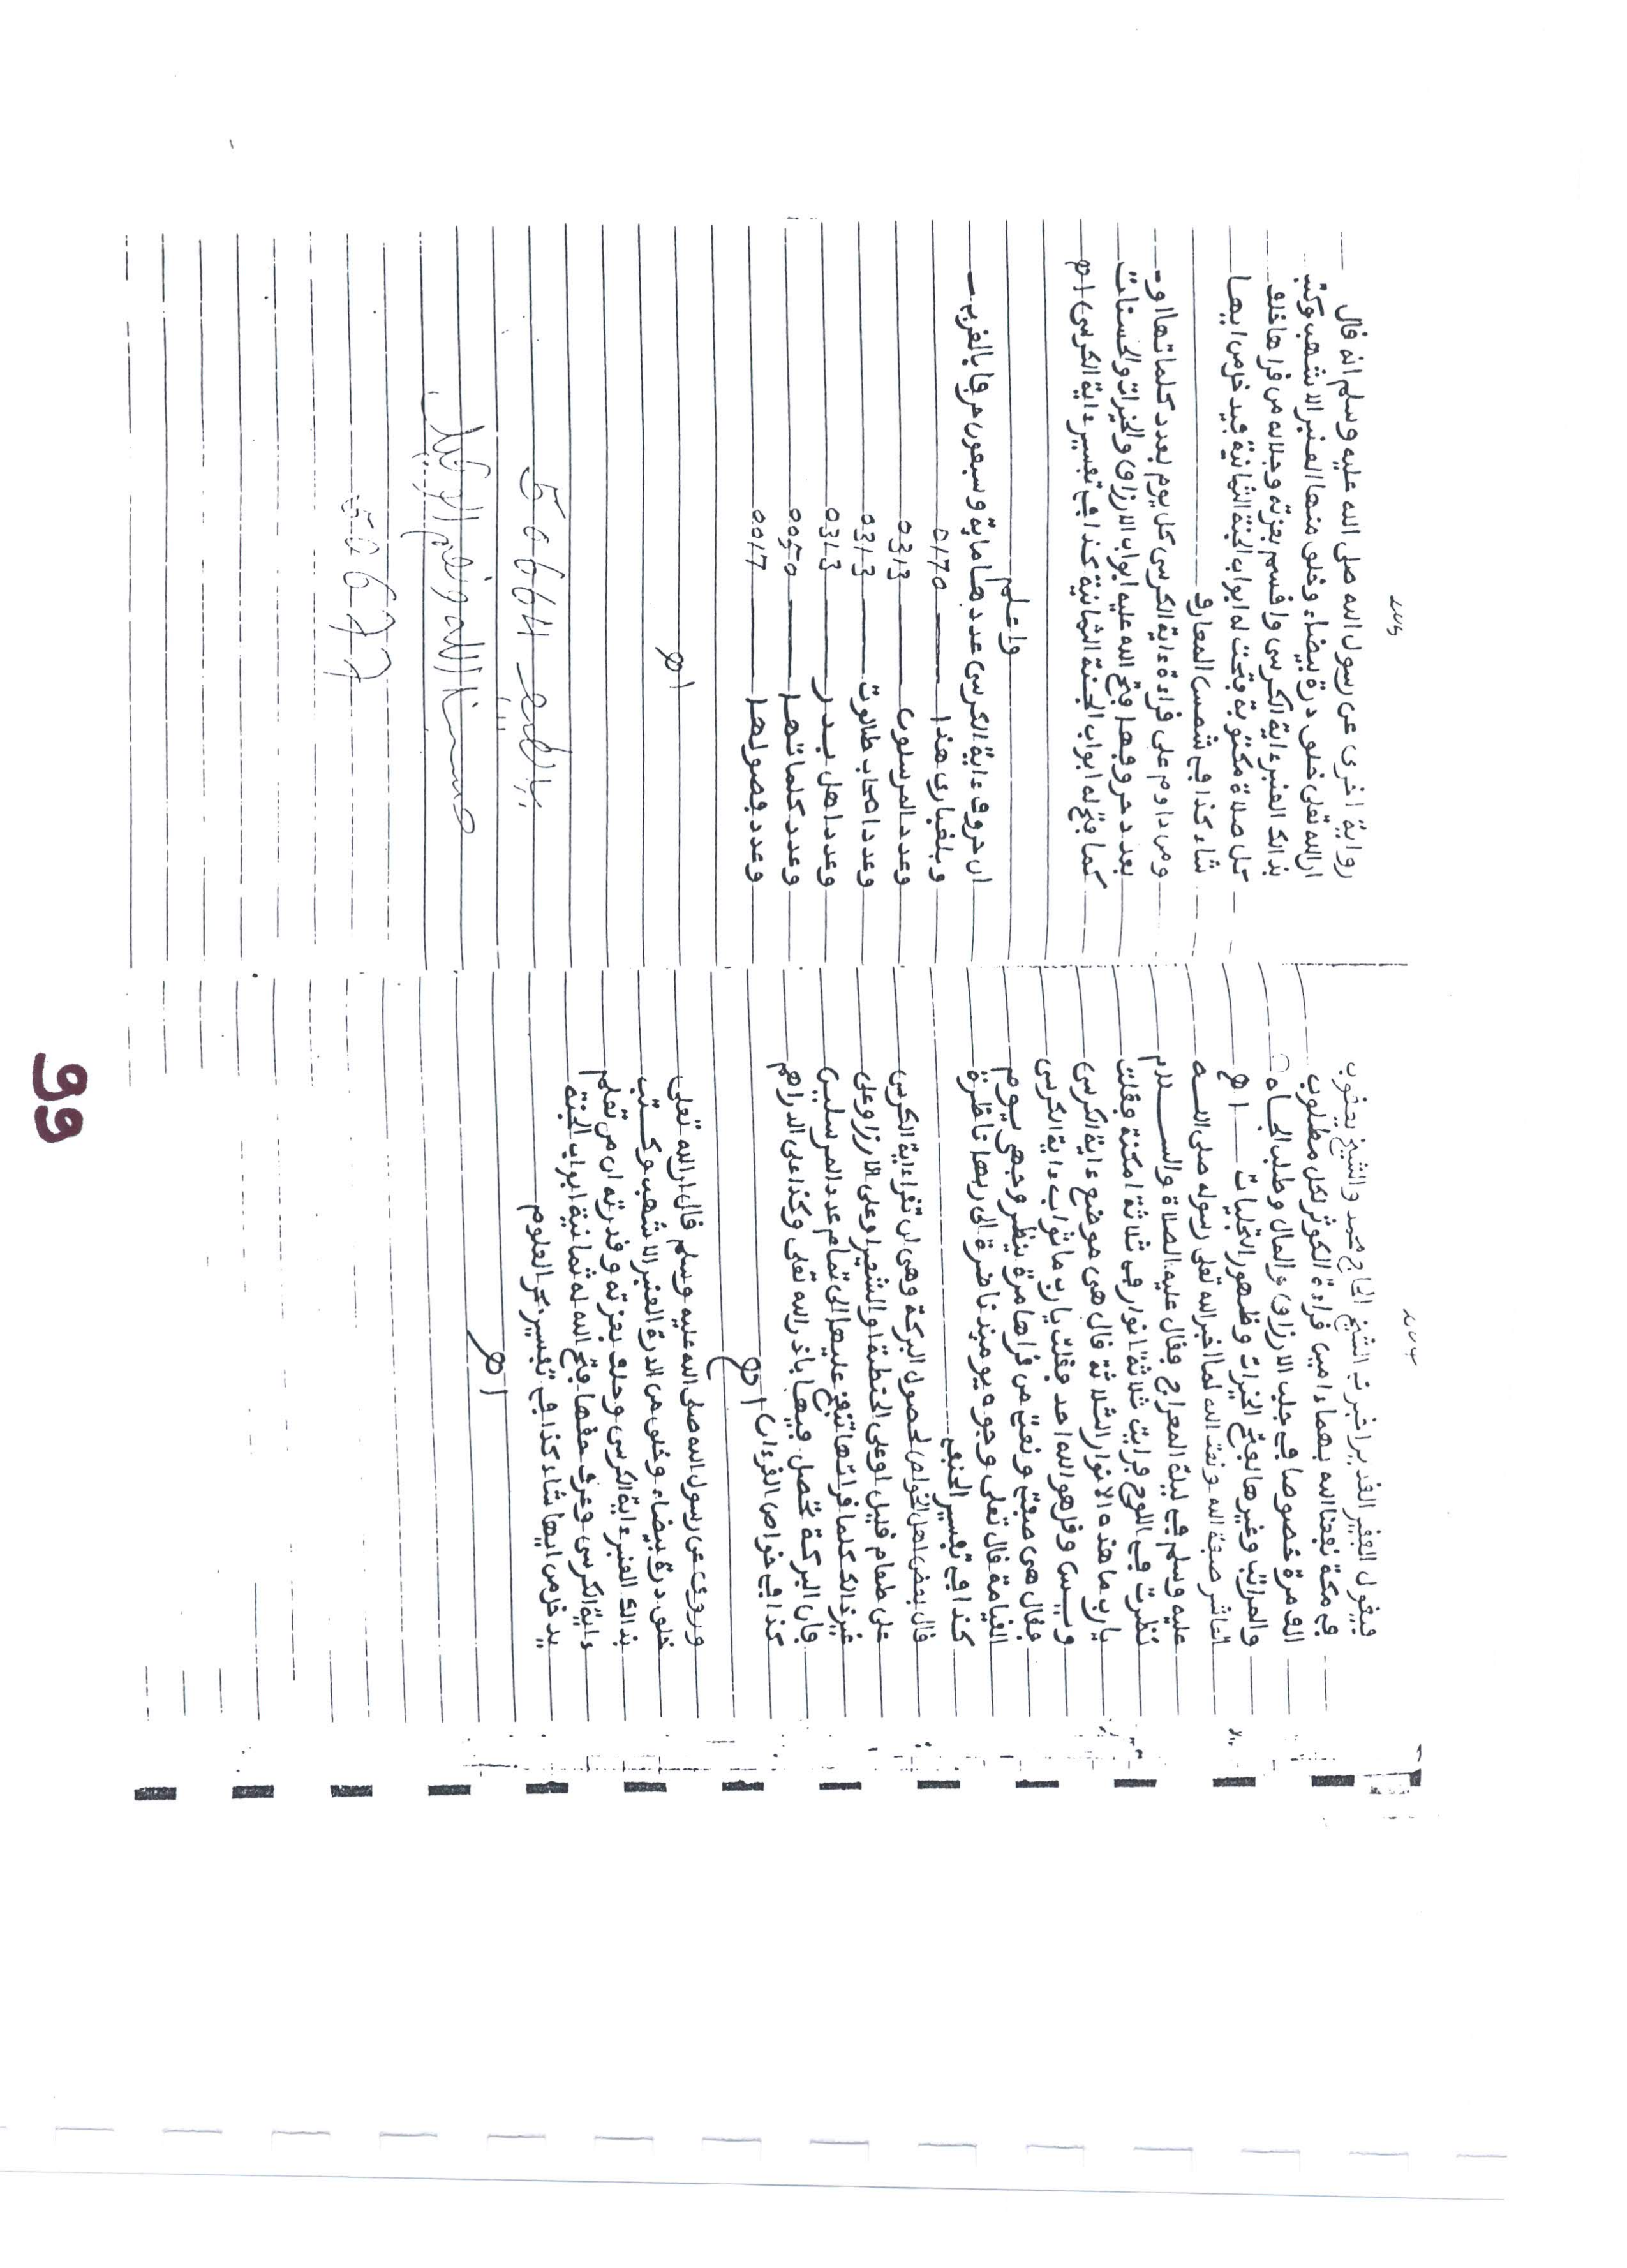 فيقول الفقير الغد ير اخبرت الشيخ الحاج محمد والشيخ يعقوب
في مكة نفعنا الله بهما ءامين قراءة الكوثر لكل مطلوب
الف مرة خصوصا في جلب الارزاق والمال وطلب الجاه
والمراتب وغيرها لفتح الخيرات وظهور التجليات اه
لما اخبر الله تعلى رسوله صلى الله
عليه وسلم في ليلة المعراج فقال عليه الصلاة والسلام
نظرت في اللوح فرايت ثلاثة انوار في ثلاثة امكنة فقلت
يارب ما هذه الانوار الثلاثة قال هي موضع ءاية الكرسي
ويــس وقل هو الله احد فقلت يارب ما ثواب ءاية الكرسي
فقال هي صفتي ونعتي من قراها مرة ينظر وجهي يوم
القيامة قال تعلى وجوه يوميذ ناضرة الى ربها ناظرة
كذا في تفسير الحنفي
قال بعض اهل الخواص لحصول البركة وهي ان تقرا ءاية الكرسي
على طعام قليل او على الحنطة او الشعير او على الارز او على
غير ذالك كلما قراتها تنفخ عليها الى تمام عدد المرسلين
فان البركة تحصل فيها باذن الله تعلى وكذا على الدراهم
كذا في خواص القرءان اه
وروي عن رسول الله صلى الله عليه وسلم قال ان الله تعلى
خلق درة بيضاء وخلق من الدرة العنبر الاشهب وكــتب
بذالك العنبر ءاية الكرسي وحلف بعزته وقدرته ان من تعلم
ءاية الكرسي وعرف حقها فتح الله له ثمانية ابواب الجنة
يدخل من ايها شاء كذا في تفسير بحر العلوم
اه
رواية اخرى عن رسول الله صلى الله عليه وسلم انه قال
ان الله تعلى خلق درة بيضاء وخلق منها العنبر الاشهب وكتب
بذالك العنبر ءاية الكرسي واقسم بعزته وجلاله من قراها خلف
كل صلاة مكتوبة فتحت له ابواب الجنة الثمانية فيدخل من ايها
شاء كذا في شمس المعارف
ومن داوم على قراءة ءاية الكرسي كل يوم بعدد كلماتها او
بعدد حروفها فتح الله عليه ابواب الارزاق والخيرات والحسنات
كما فتح له ابواب الجنة الثمانية كذا في تفسير ءاية الكرسي اه
واعلم
ان حروف ءاية الكرسي عددها ماية وسبعون حرفا بالغرب
وبلغباري هذا ــــ 0170
وعدد المرسلون ــــ 0313
وعدد اصحاب طالوت ــــ 0313
وعدد اهل بدر ــــ 0313
وعدد كلماتها ــــ 0050
وعدد فصولها ــــ 0017
اه
حسبنا الله ونعم الوكيل
99